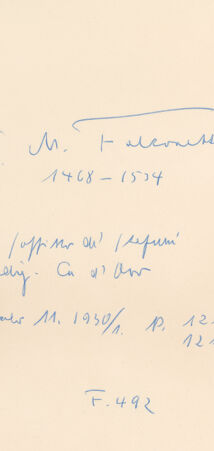 M. Falconett
1468 – 1534
soffitto di Stefani
Ca d'Oro
11. 1930/1. P. 12
12
F. 492